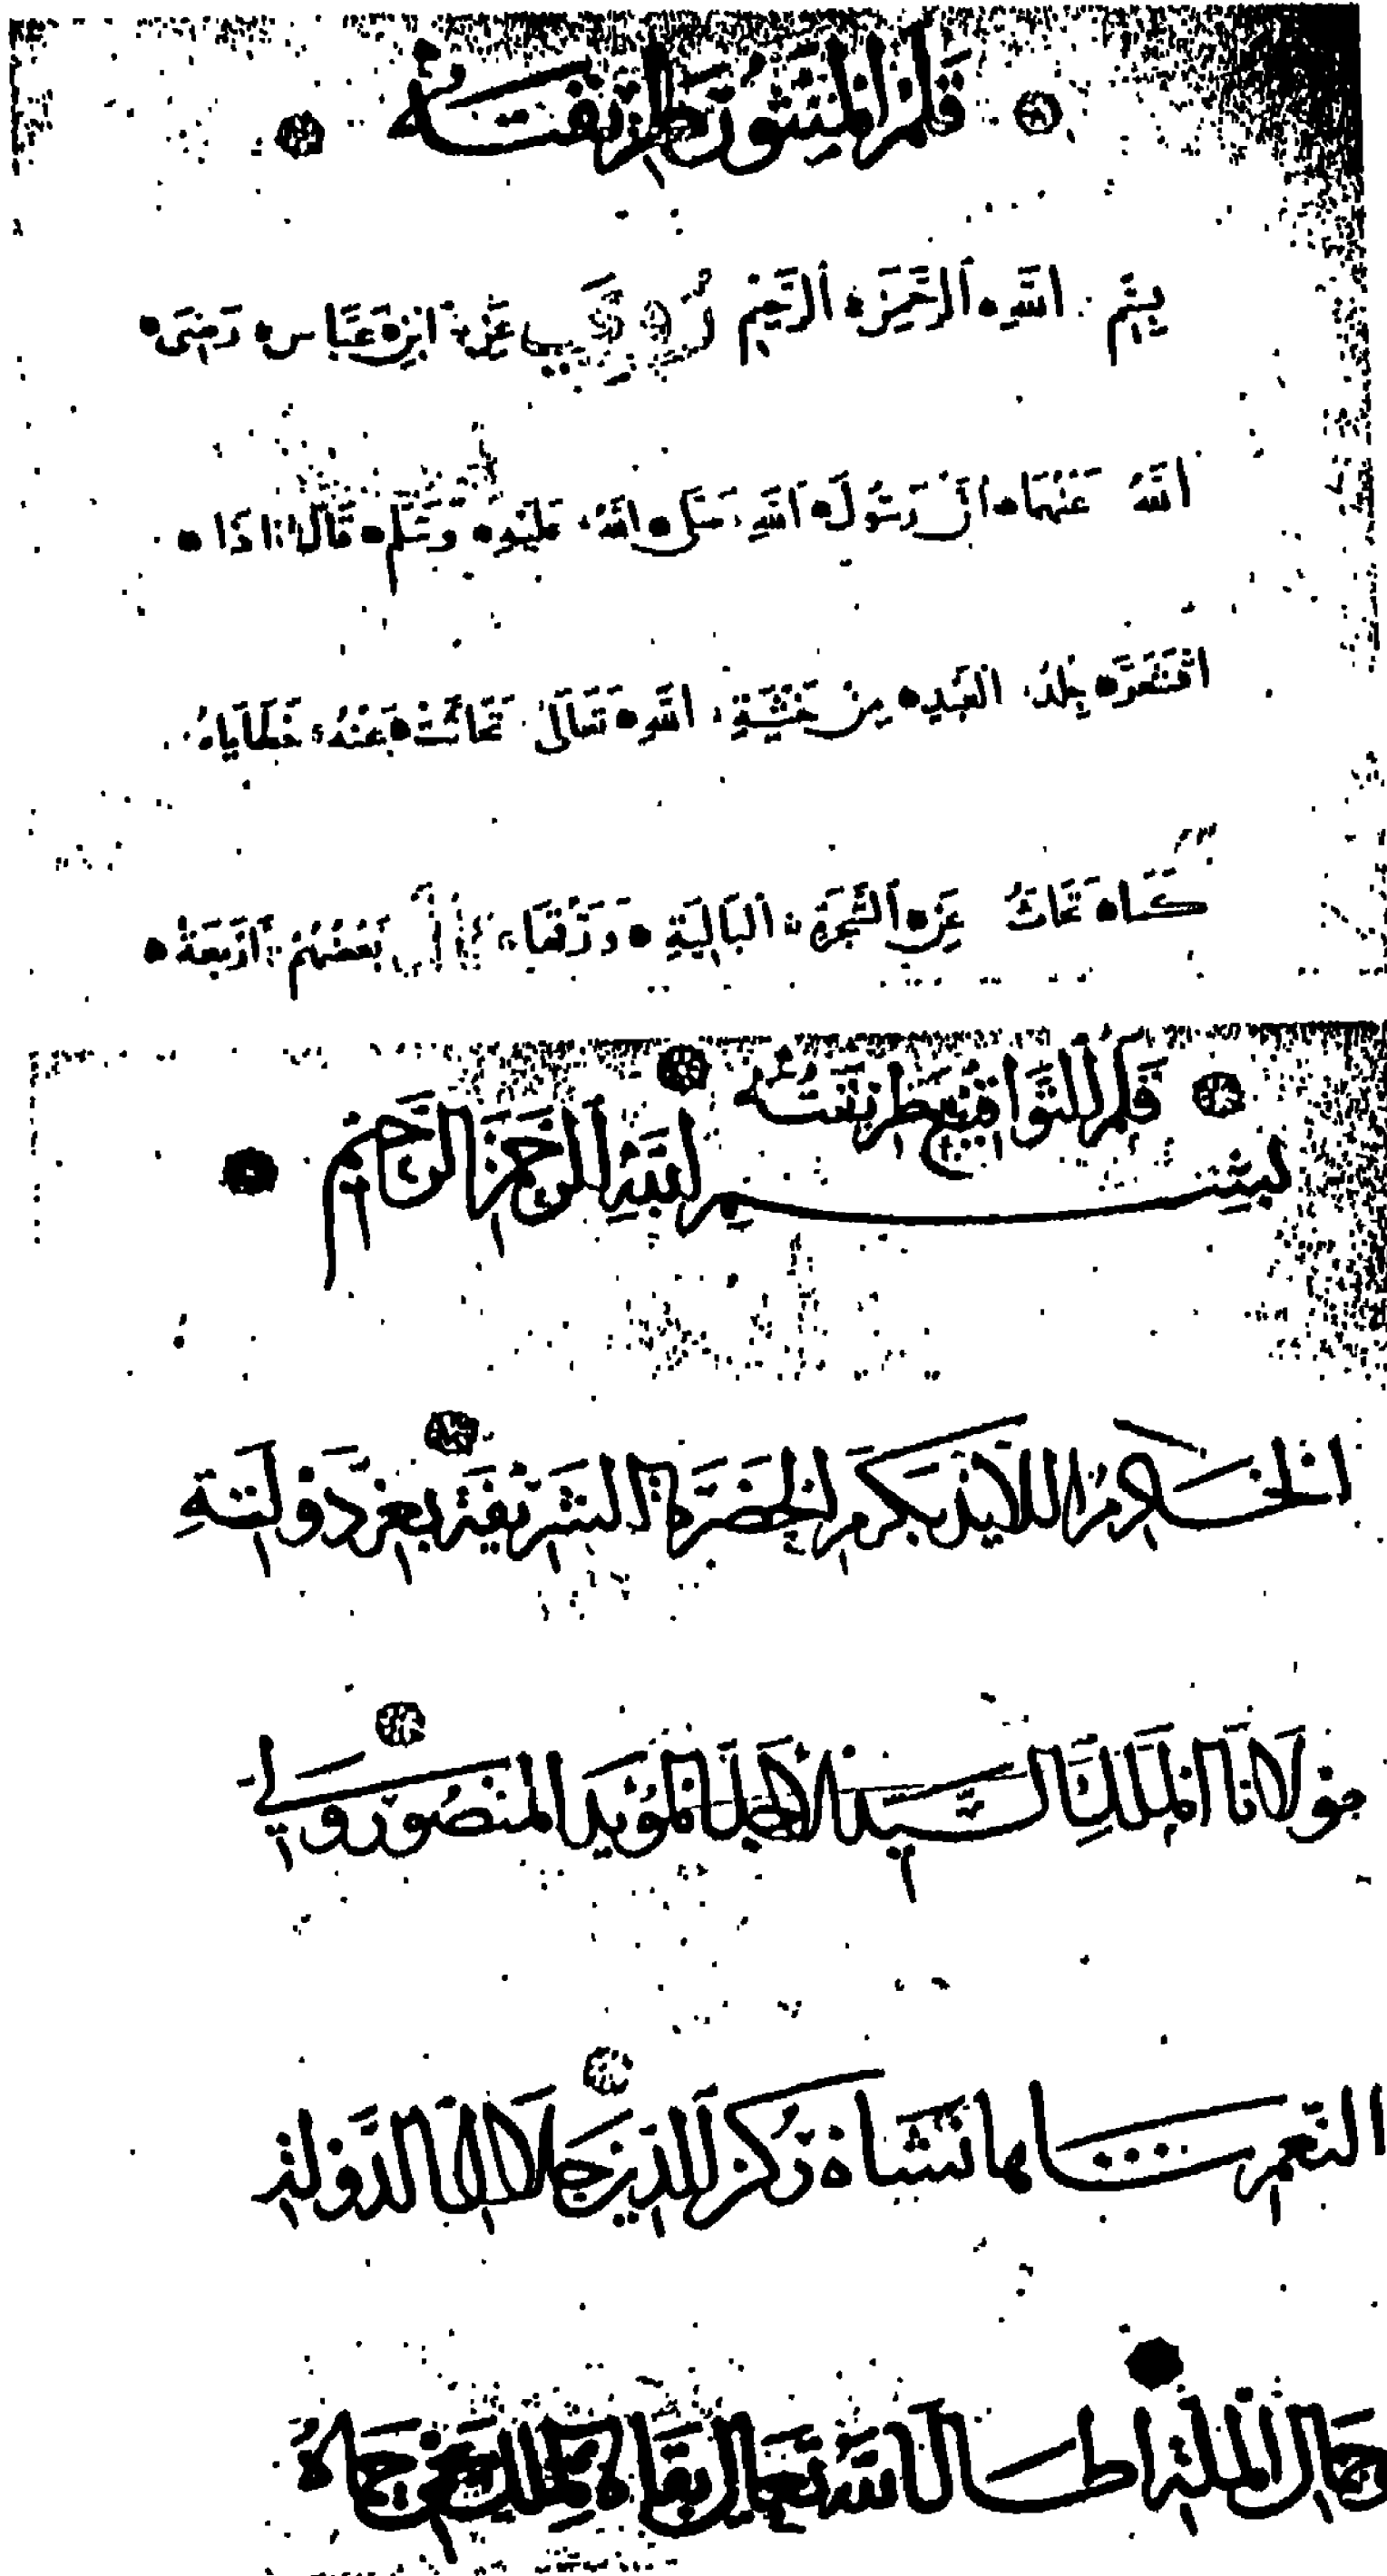 قلم المنثور طريقته
بسم الله الرحمن الرحيم رُوِيَ عن ابن عباس رضي
الله عنهما ان رسول الله صلى الله عليه وسلم قال اذا
اقشعر جلد العبد من خشية الله تعالى تحاتت عنه خطاياه
كما تحات عن الشجرة البالية ورقها بعضهم اربعة
قلم التواقيع طريقته
بسم الله الرحمن الرحيم
الخادم اللائذ بكرم الحضرة الشريفة بعز دولته
مولانا الملك السيد الاجل المؤيد المنصور ولي
النعم شاهانشاه ركن الدين جلال الدولة
وجمال الملة اطال الله تعالى بقاه